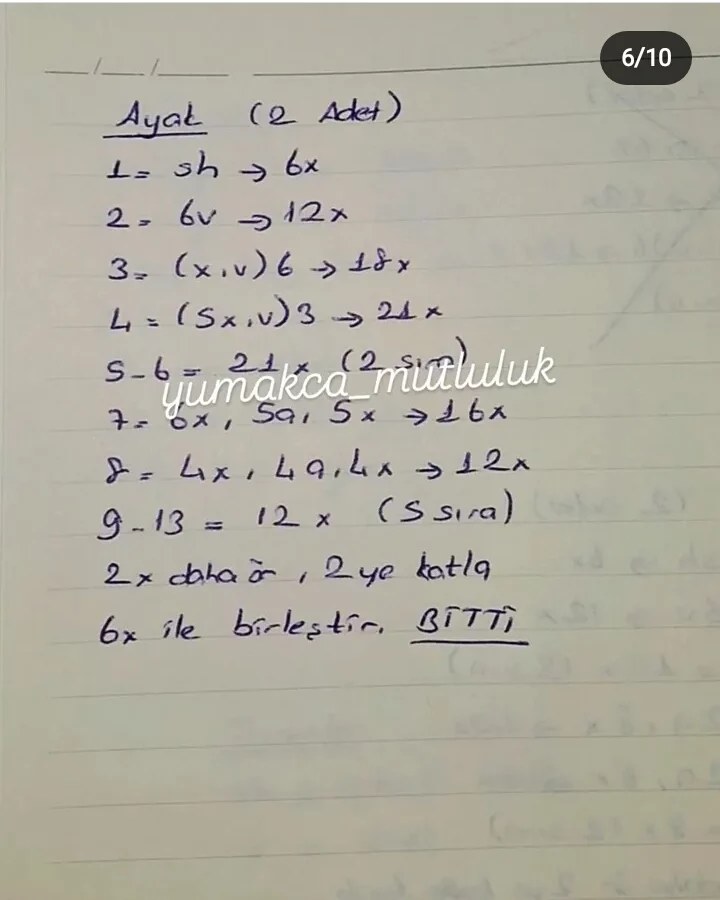 6/10
Ayak (2 Adet)
1= sh → 6x
2= 6v → 12x
3= (x,v)6 → 18x
4= (5x,v)3 → 21x
5-6= 21x (2 sıra)
yumakca_mutluluk
7= 6x, 5a, 5x → 16x
8= 4x, 4a, 4x → 12x
9-13= 12x (5 sıra)
2x daha ör, 2ye katla
6x ile birleştir. BİTTİ